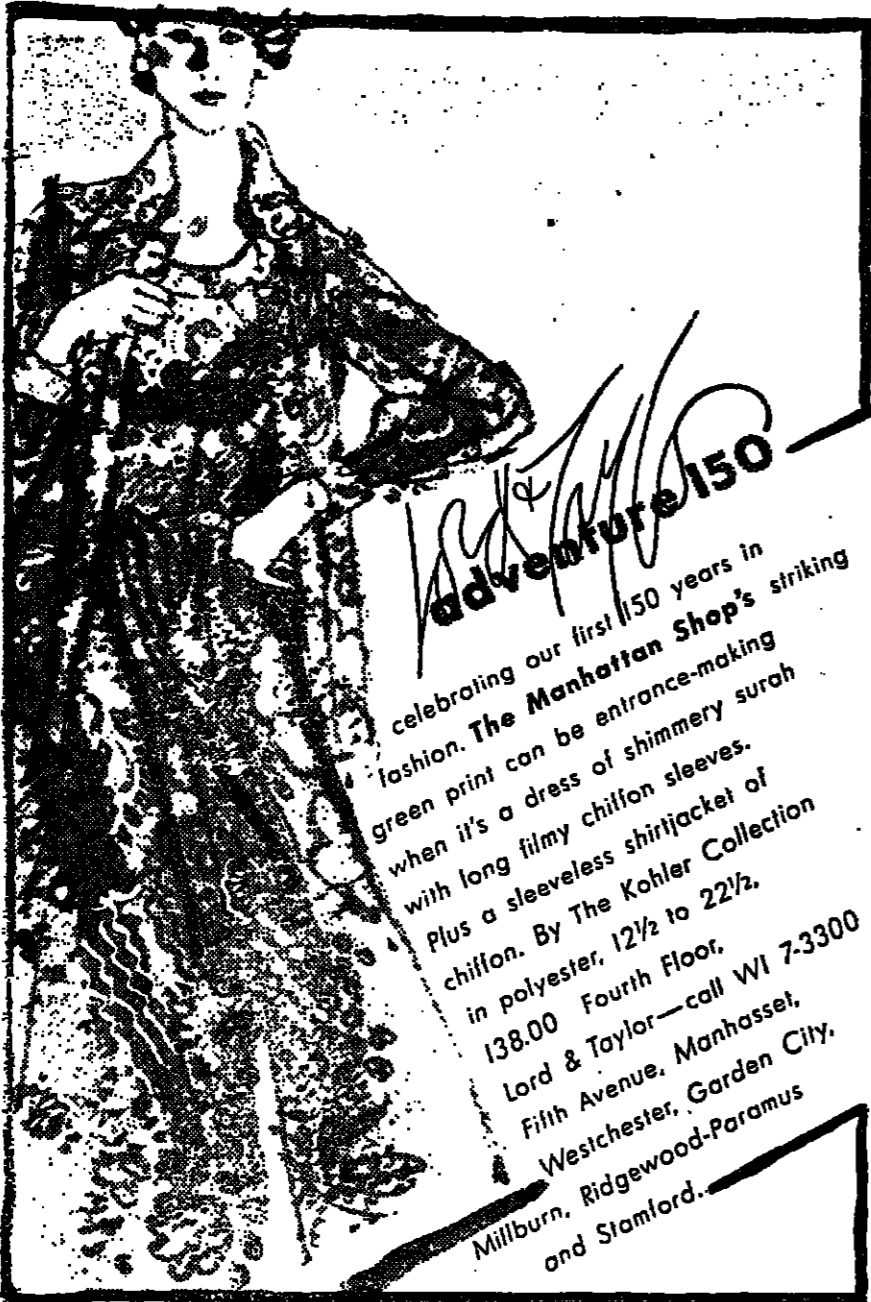 Lord & Taylor
adventure 150
celebrating our first 150 years in
fashion. The Manhattan Shop's striking
green print can be entrance-making
when it's a dress of shimmery surah
with long filmy chiffon sleeves.
Plus a sleeveless shirtjacket of
chiffon. By The Kohler Collection
in polyester, 12½ to 22½,
138.00 Fourth Floor,
Lord & Taylor—call WI 7-3300
Fifth Avenue, Manhasset,
Westchester, Garden City,
Millburn, Ridgewood-Paramus
and Stamford.